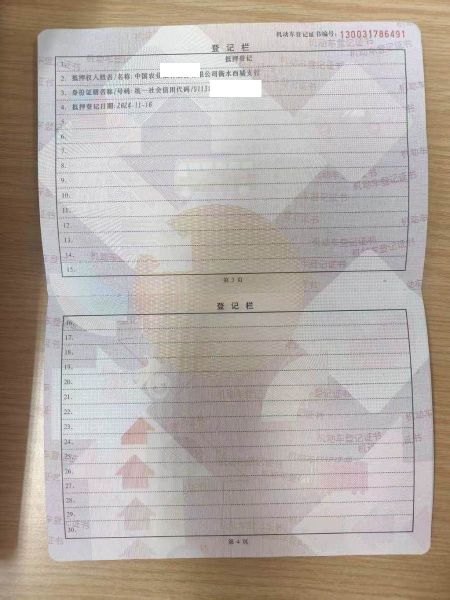 机动车登记证书编号: 130031786491
登记栏
1. 抵押登记
2. 抵押权人姓名/名称: 中国农业 有限公司衡水西城支行
3. 身份证明名称/号码: 统一社会信用代码/9113
4. 抵押登记日期: 2024-11-18
5.
6.
7.
8.
9.
10.
11.
12.
13.
14.
15.
第 3 页
登记栏
16.
17.
18.
19.
20.
21.
22.
23.
24.
25.
26.
27.
28.
29.
30.
第 4 页